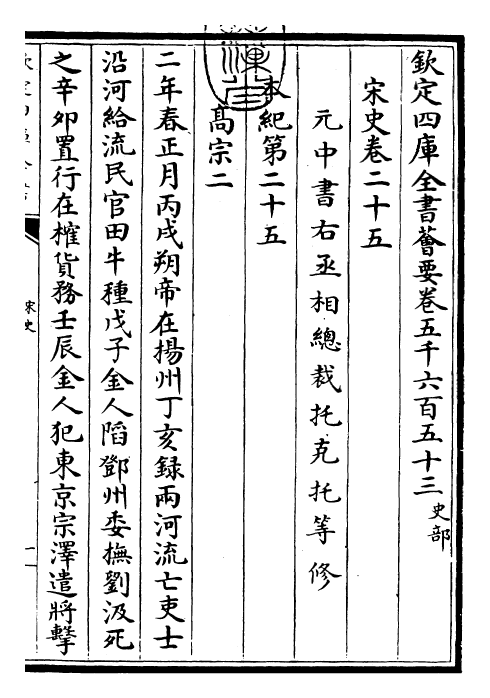 欽定四庫全書薈要卷五千六百五十三 史部
宋史卷二十五
元中書右丞相總裁托克托等修
本紀第二十五
髙宗二
二年春正月丙戌朔帝在揚州丁亥録兩河流亡吏士
沿河給流民官田牛種戊子金人陷鄧州委撫劉汲死
之辛夘置行在𣙜貨務壬辰金人犯東京宗澤遣將擊
宋史